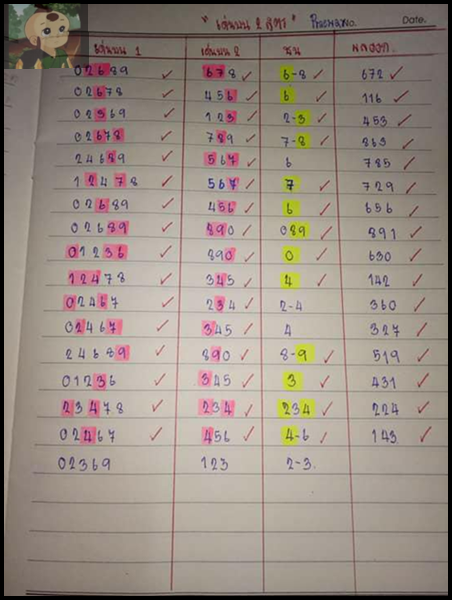 " เด่นบน 2 สูตร " No. Date.
เด่นบน 1 เด่นบน 2 ชน ผลออก
02689 ✓ 678 ✓ 6-8 ✓ 672 ✓
02678 ✓ 456 ✓ 6 ✓ 116 ✓
02369 ✓ 123 ✓ 2-3 ✓ 453 ✓
02678 ✓ 789 ✓ 7-8 ✓ 863 ✓
24689 ✓ 567 ✓ 6 785 ✓
12478 ✓ 567 ✓ 7 ✓ 729 ✓
02689 ✓ 456 ✓ 6 ✓ 656 ✓
02689 ✓ 890 ✓ 089 ✓ 891 ✓
01236 ✓ 890 ✓ 0 ✓ 630 ✓
12478 ✓ 345 ✓ 4 ✓ 142 ✓
02467 ✓ 234 ✓ 2-4 360 ✓
02467 ✓ 345 ✓ 4 327 ✓
24689 ✓ 890 ✓ 8-9 ✓ 519 ✓
01236 ✓ 345 ✓ 3 ✓ 431 ✓
23478 ✓ 234 ✓ 234 ✓ 224 ✓
02467 ✓ 456 ✓ 4-6 ✓ 143 ✓
02369 123 2-3.